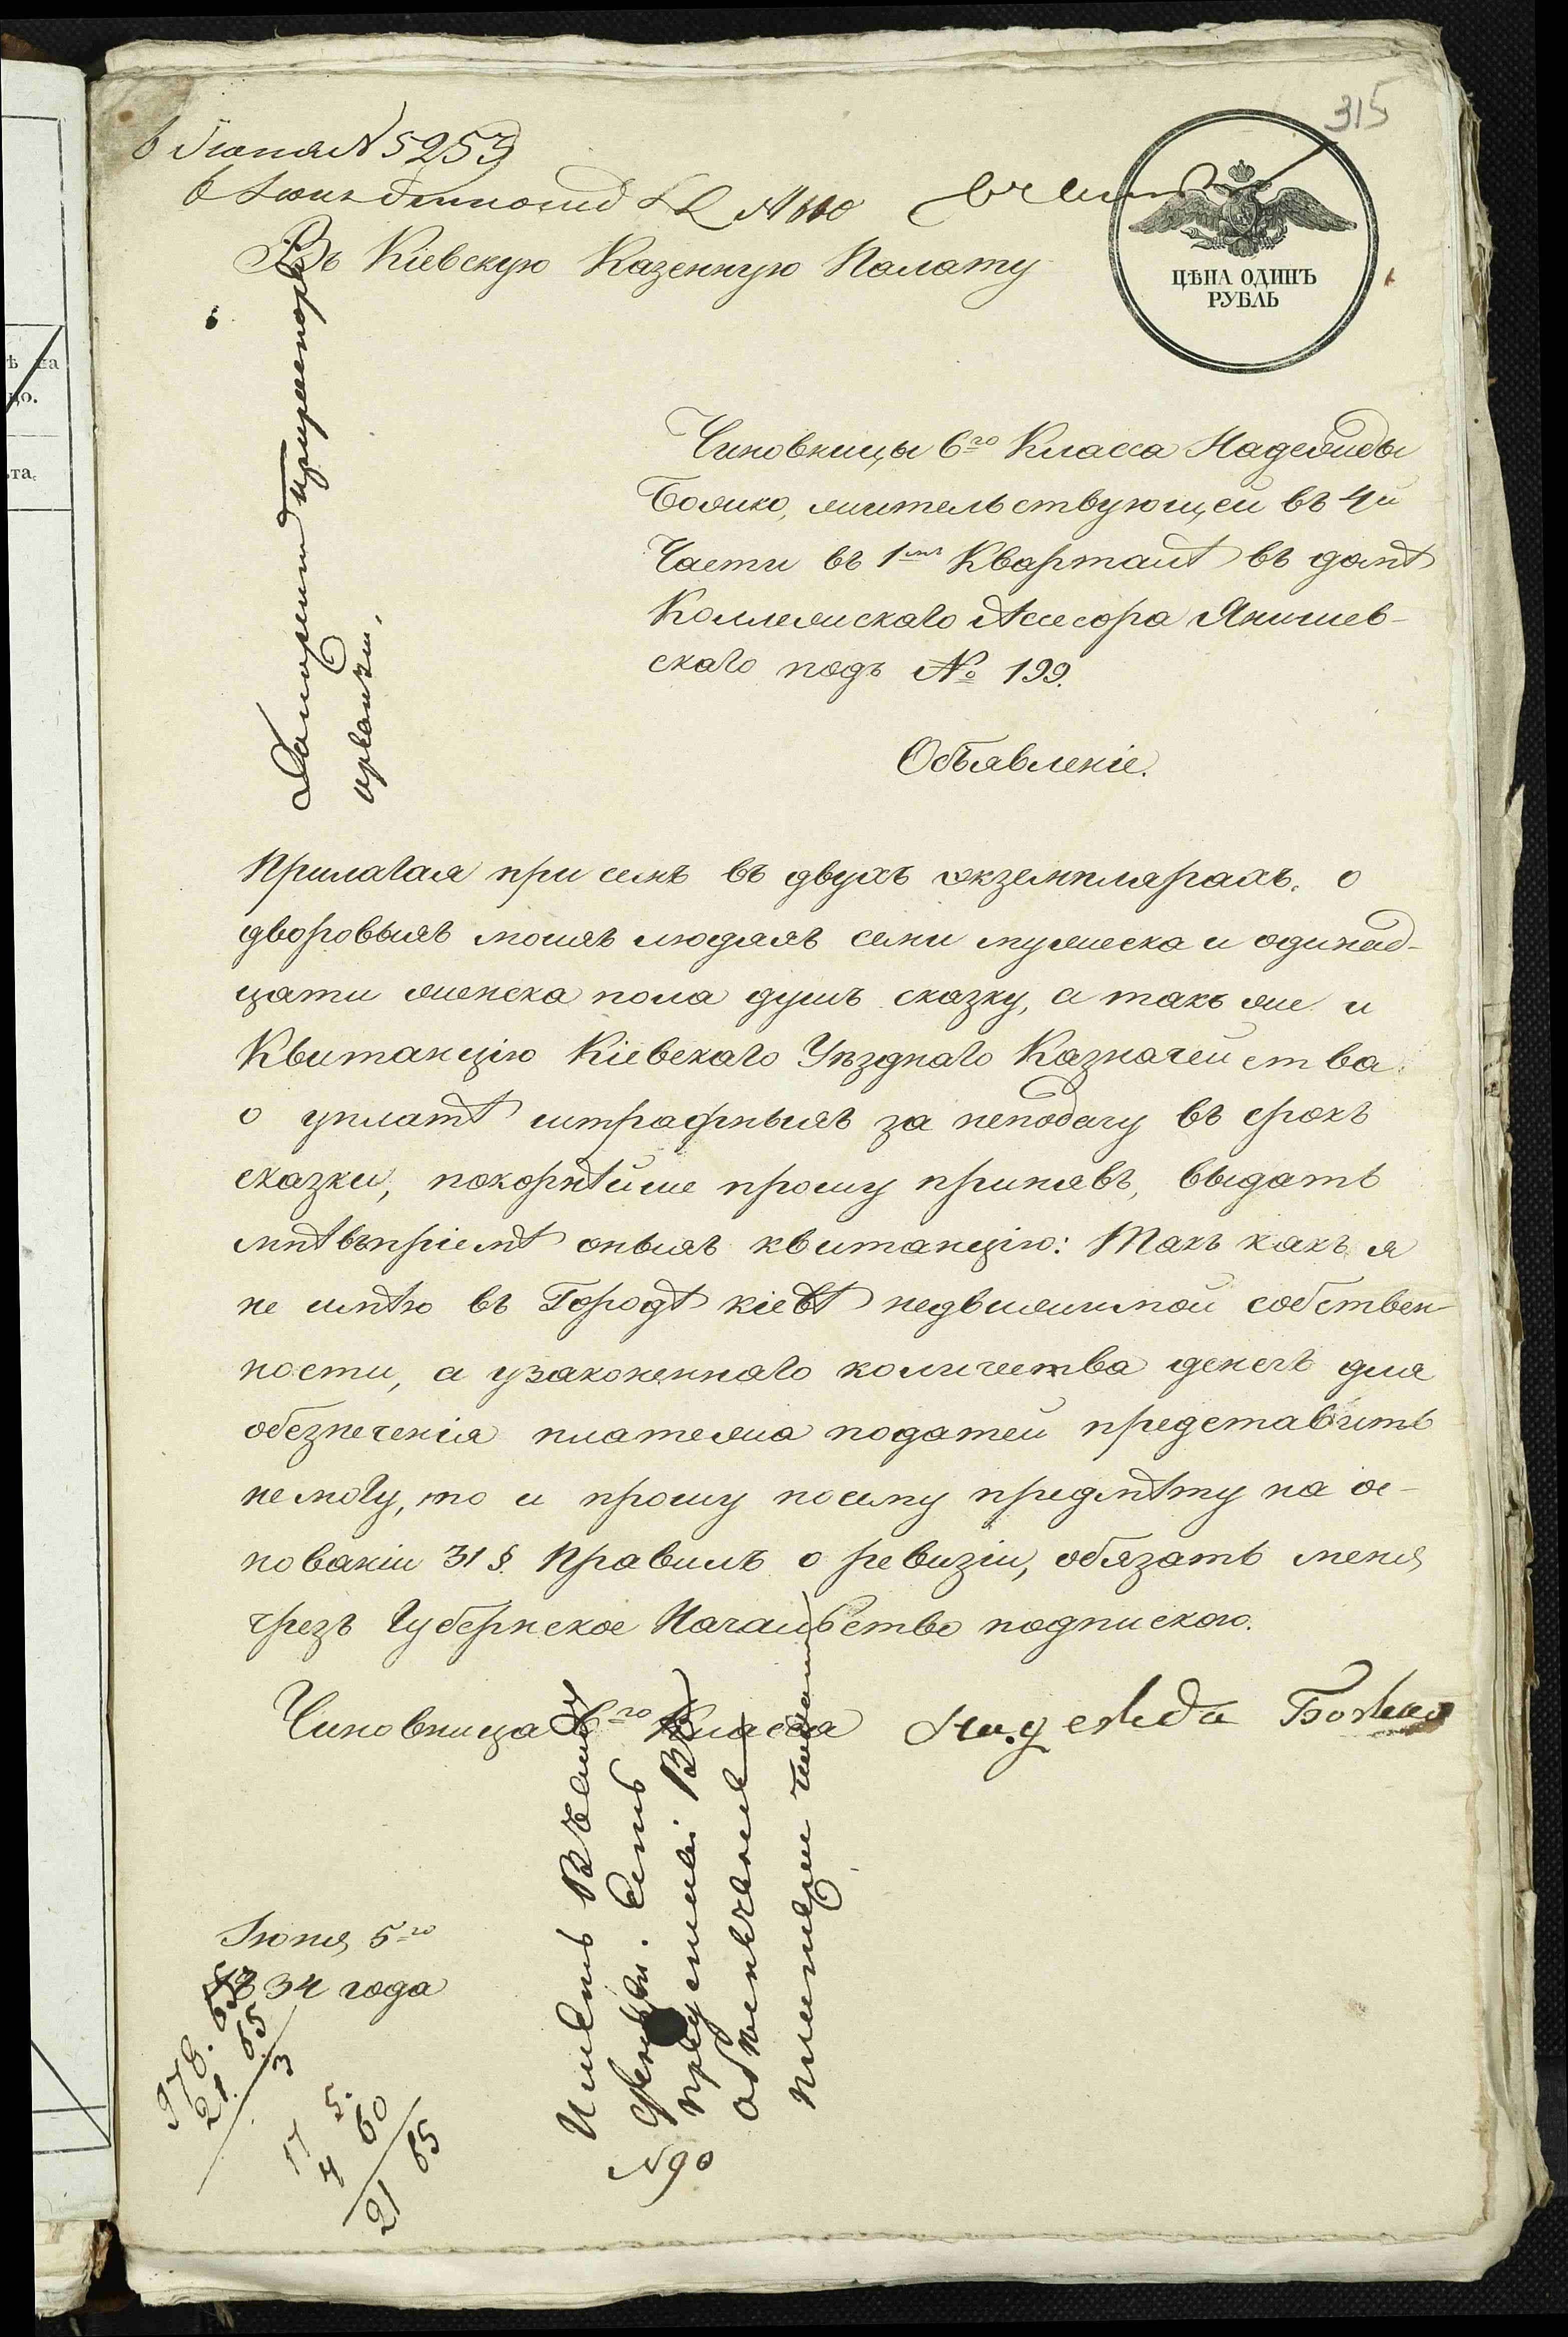 315
6 Іюня № 5253
Въ Кіевскую Казенную Палату
ЦѢНА ОДИНЪ
РУБЛЬ
Чиновницы 6го Класса Надежды
Божко, жительствующей въ 4й
Части въ 1мъ Кварталѣ въ домѣ
Коллежскаго Ассесора Янишев-
скаго подъ № 199.
Объявленіе.
Прилагая при семъ въ двухъ экземплярахъ, о
дворовыхъ моихъ людяхъ семи мужеска и одинад-
цати женска пола душъ сказку, а такъ же и
Квитанцію Кіевскаго Уѣзднаго Казначейства
о уплатѣ штрафныхъ за неподачу въ срокъ
сказки, покорнѣйше прошу принявъ, выдать
мнѣ въ пріемѣ оныхъ квитанцію: Такъ какъ я
не имѣю въ Городѣ кіевѣ недвижимой собствен-
ности, а узаконеннаго количества денегъ для
обезпеченія платежа податей представить
не могу, то и прошу по сему предмѣту на ос-
нованіи 31 §. Правилъ о ревизіи, обязать меня
чрезъ Губернское Начальство подпискою.
Чиновница 6го Класса Надежда Божко
Іюня 5го
1834 года
№ 90
978. 65
21. 65
3
17 5.
4 60
21 65